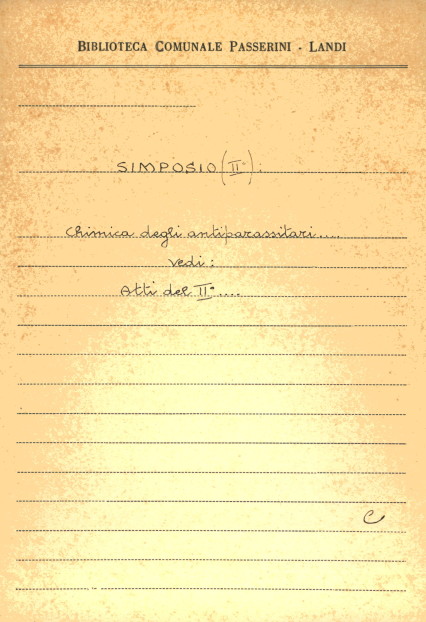 BIBLIOTECA COMUNALE PASSERINI - LANDI
SIMPOSIO (II°).
Chimica degli antiparassitari....
Vedi:
Atti del II°....
C